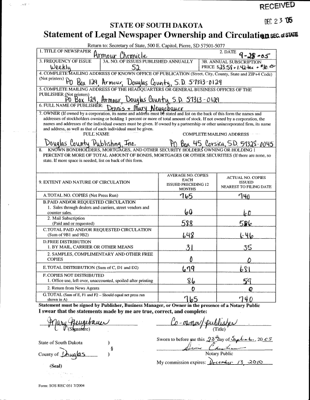 RECEIVED
DEC 23 '05
STATE OF SOUTH DAKOTA
Statement of Legal Newspaper Ownership and Circulation
Return to: Secretary of State, 500 E. Capitol, Pierre, SD 57501-5077
1. TITLE OF NEWSPAPER Armour Chronicle
2. DATE 9-28-05
3. FREQUENCY OF ISSUE Weekly
3A. NO. OF ISSUES PUBLISHED ANNUALLY 52
3B. ANNUAL SUBSCRIPTION PRICE
4. COMPLETE MAILING ADDRESS OF KNOWN OFFICE OF PUBLICATION (Street, City, County, State and ZIP+4 Code) (Not printers)
PO Box 129, Armour, Douglas County, S.D. 57313-0129
5. COMPLETE MAILING ADDRESS OF THE HEADQUARTERS OF GENERAL BUSINESS OFFICES OF THE PUBLISHER (Not printer)
PO Box 129, Armour, Douglas County S.D. 57313-0129
6. FULL NAME OF PUBLISHER: Dennis + Mary Neugebauer
7. OWNER (If owned by a corporation, its name and address must be stated and
addresses of stockholders owning or holding 1 percent or more of total amount of stock. If not owned by a corporation, the
names and addresses of the individual owners must be given. If owned by a partnership or other unincorporated firm, its name
and address, as well as that of each individual must be given.
FULL NAME
COMPLETE MAILING ADDRESS
Douglas County Publishing, Inc.
PO Box 45 Corsica, S.D. 57328-0045
8. KNOWN BONDHOLDERS, MORTGAGES, AND OTHER SECURITY HOLDERS OWNING OR HOLDING 1
PERCENT OR MORE OF TOTAL AMOUNT OF BONDS, MORTGAGES OR OTHER SECURITIES (If there are none, so
state. If more space is needed, list on back of this form.
9. EXTENT AND NATURE OF CIRCULATION
AVERAGE NO. COPIES EACH ISSUED PRECEDING 12 MONTHS
ACTUAL NO. COPIES ISSUED NEAREST TO FILING DATE
A. TOTAL NO. COPIES (Net Press Run) 765 740
B. PAID AND/OR REQUESTED CIRCULATION
1. Sales through dealers and carriers, street vendors and counter sales. 60 60
2. Mail Subscription (Paid and or requested) 588 586
C. TOTAL PAID AND/OR REQUESTED CIRCULATION (Sum of 9B1 and 9B2) 648 646
D. FREE DISTRIBUTION
1. BY MAIL, CARRIER OR OTHER MEANS 31 35
2. SAMPLES, COMPLIMENTARY AND OTHER FREE COPIES 0 0
E. TOTAL DISTRIBUTION (Sum of C, D1 and D2) 679 681
F. COPIES NOT DISTRIBUTED
1. Office use, left over, unaccounted, spoiled after printing 86 59
2. Return from News Agents 0 0
G. TOTAL (Sum of E, F1 and F2 - Should equal net press run shown in A) 765 740
Statement must be signed by Publisher, Business Manager, or Owner in the presence of a Notary Public
I swear that the statements made by me are true, correct, and complete:
Mary Neugebauer
(Signature)
Co-owner/publisher
(Title)
State of South Dakota )
County of Douglas )
Sworn to before me this 28 Day of September, 2005
Notary Public
(Seal)
My commission expires: December 13, 2010